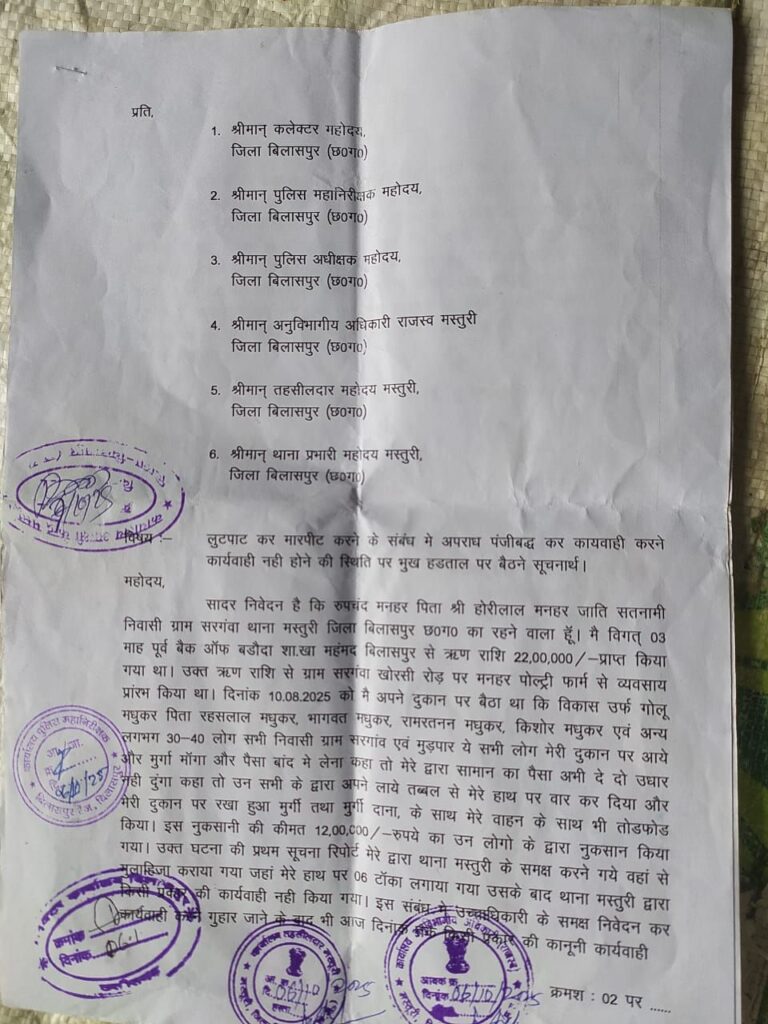 प्रति,
1. श्रीमान् कलेक्टर महोदय,
जिला बिलासपुर (छ0ग0)
2. श्रीमान् पुलिस महानिरीक्षक महोदय,
जिला बिलासपुर (छ0ग0)
3. श्रीमान् पुलिस अधीक्षक महोदय,
जिला बिलासपुर (छ0ग0)
4. श्रीमान् अनुविभागीय अधिकारी राजस्व मस्तुरी
जिला बिलासपुर (छ0ग0)
5. श्रीमान् तहसीलदार महोदय मस्तुरी,
जिला बिलासपुर (छ0ग0)
6. श्रीमान् थाना प्रभारी महोदय मस्तुरी,
जिला बिलासपुर (छ0ग0)
विषय :– लुटपाट कर मारपीट करने के संबंध मे अपराध पंजीबद्ध कर कायवाही करने
कार्यवाही नही होने की स्थिति पर भुख हडताल पर बैठने सूचनार्थ।
महोदय,
सादर निवेदन है कि रुपचंद मनहर पिता श्री होरीलाल मनहर जाति सतनामी
निवासी ग्राम सरगंवा थाना मस्तुरी जिला बिलासपुर छ0ग0 का रहने वाला हूॅं। मै विगत् 03
माह पूर्व बैक ऑफ बडौदा शा.खा महंमद बिलासपुर से ऋण राशि 22,00,000/–प्राप्त किया
गया था। उक्त ऋण राशि से ग्राम सरगंवा खोरसी रोड़ पर मनहर पोल्ट्री फार्म से व्यवसाय
प्रांरभ किया था। दिनांक 10.08.2025 को मै अपने दुकान पर बैठा था कि विकास उर्फ गोलू
मधुकर पिता रहसलाल मधुकर, भागवत मधुकर, रामरतनन मधुकर, किशोर मधुकर एवं अन्य
लगभग 30–40 लोग सभी निवासी ग्राम सरगांव एवं मुड़पार ये सभी लोग मेरी दुकान पर आये
और मुर्गा मॉगा और पैसा बांद मे लेना कहा तो मेरे द्वारा सामान का पैसा अभी दे दो उधार
नही दुंगा कहा तो उन सभी के द्वारा अपने लाये तब्बल से मेरे हाथ पर वार कर दिया और
मेरी दुकान पर रखा हुआ मुर्गी तथा मुर्गी दाना, के साथ मेरे वाहन के साथ भी तोडफोड
किया। इस नुकसानी की कीमत 12,00,000/–रुपये का उन लोगो के द्वारा नुकसान किया
गया। उक्त घटना की प्रथम सूचना रिपोर्ट मेरे द्वारा थाना मस्तुरी के समक्ष करने गये वहां से
मुलाहिजा कराया गया जहां मेरे हाथ पर 06 टॉका लगाया गया उसके बाद थाना मस्तुरी द्वारा
किसी प्रकार की कार्यवाही नही किया गया। इस संबंध मे उच्चाधिकारी के समक्ष निवेदन कर
कार्यवाही करने गुहार जाने के बाद भी आज दिनांक तक किसी प्रकार की कानूनी कार्यवाही
क्रमश : 02 पर ......
कार्यालय पुलिस महानिरीक्षक
बिलासपुर रेंज, बिलासपुर
06/10/25
क्रमांक
दिनांक
कार्यालय तहसीलदार मस्तुरी
06/10
आवक क्र.
दिनांक 06/10/2025